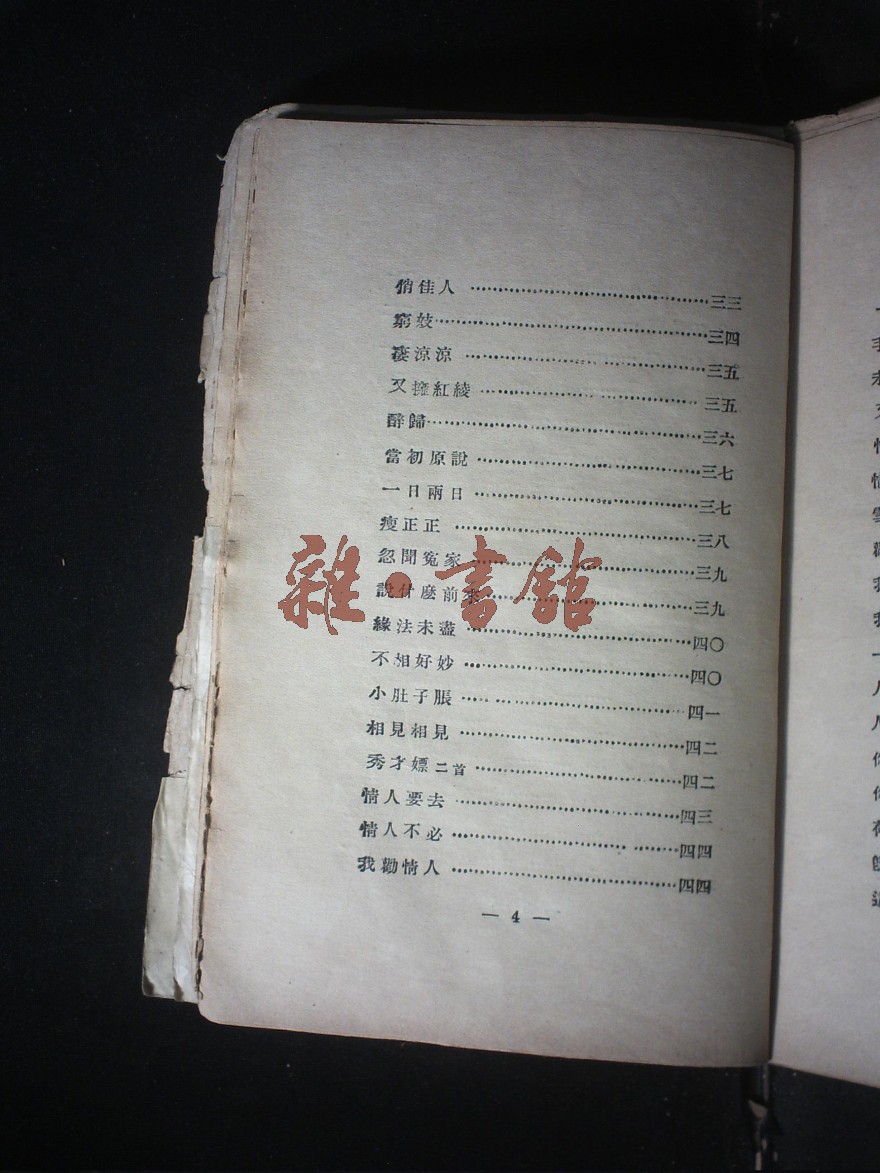 俏佳人 ⋯⋯⋯⋯⋯⋯⋯⋯三三
窮妓⋯⋯⋯⋯⋯⋯⋯⋯三四
凄涼涼 ⋯⋯⋯⋯⋯⋯⋯⋯三五
又擁紅綾 ⋯⋯⋯⋯⋯⋯⋯⋯三五
醉歸⋯⋯⋯⋯⋯⋯⋯⋯三六
當初原說 ⋯⋯⋯⋯⋯⋯⋯⋯三七
一日兩日 ⋯⋯⋯⋯⋯⋯⋯⋯三七
瘦正正 ⋯⋯⋯⋯⋯⋯⋯⋯三八
忽聞寃家 ⋯⋯⋯⋯⋯⋯⋯⋯三九
說什麼前來 ⋯⋯⋯⋯⋯⋯⋯⋯三九
緣法未盡 ⋯⋯⋯⋯⋯⋯⋯⋯四〇
不相好妙 ⋯⋯⋯⋯⋯⋯⋯⋯四〇
小肚子脹 ⋯⋯⋯⋯⋯⋯⋯⋯四一
相見相見 ⋯⋯⋯⋯⋯⋯⋯⋯四二
秀才嫖二首 ⋯⋯⋯⋯⋯⋯⋯⋯四二
情人要去 ⋯⋯⋯⋯⋯⋯⋯⋯四三
情人不必 ⋯⋯⋯⋯⋯⋯⋯⋯四四
我勸情人 ⋯⋯⋯⋯⋯⋯⋯⋯四四
— 4 —
雜·書館